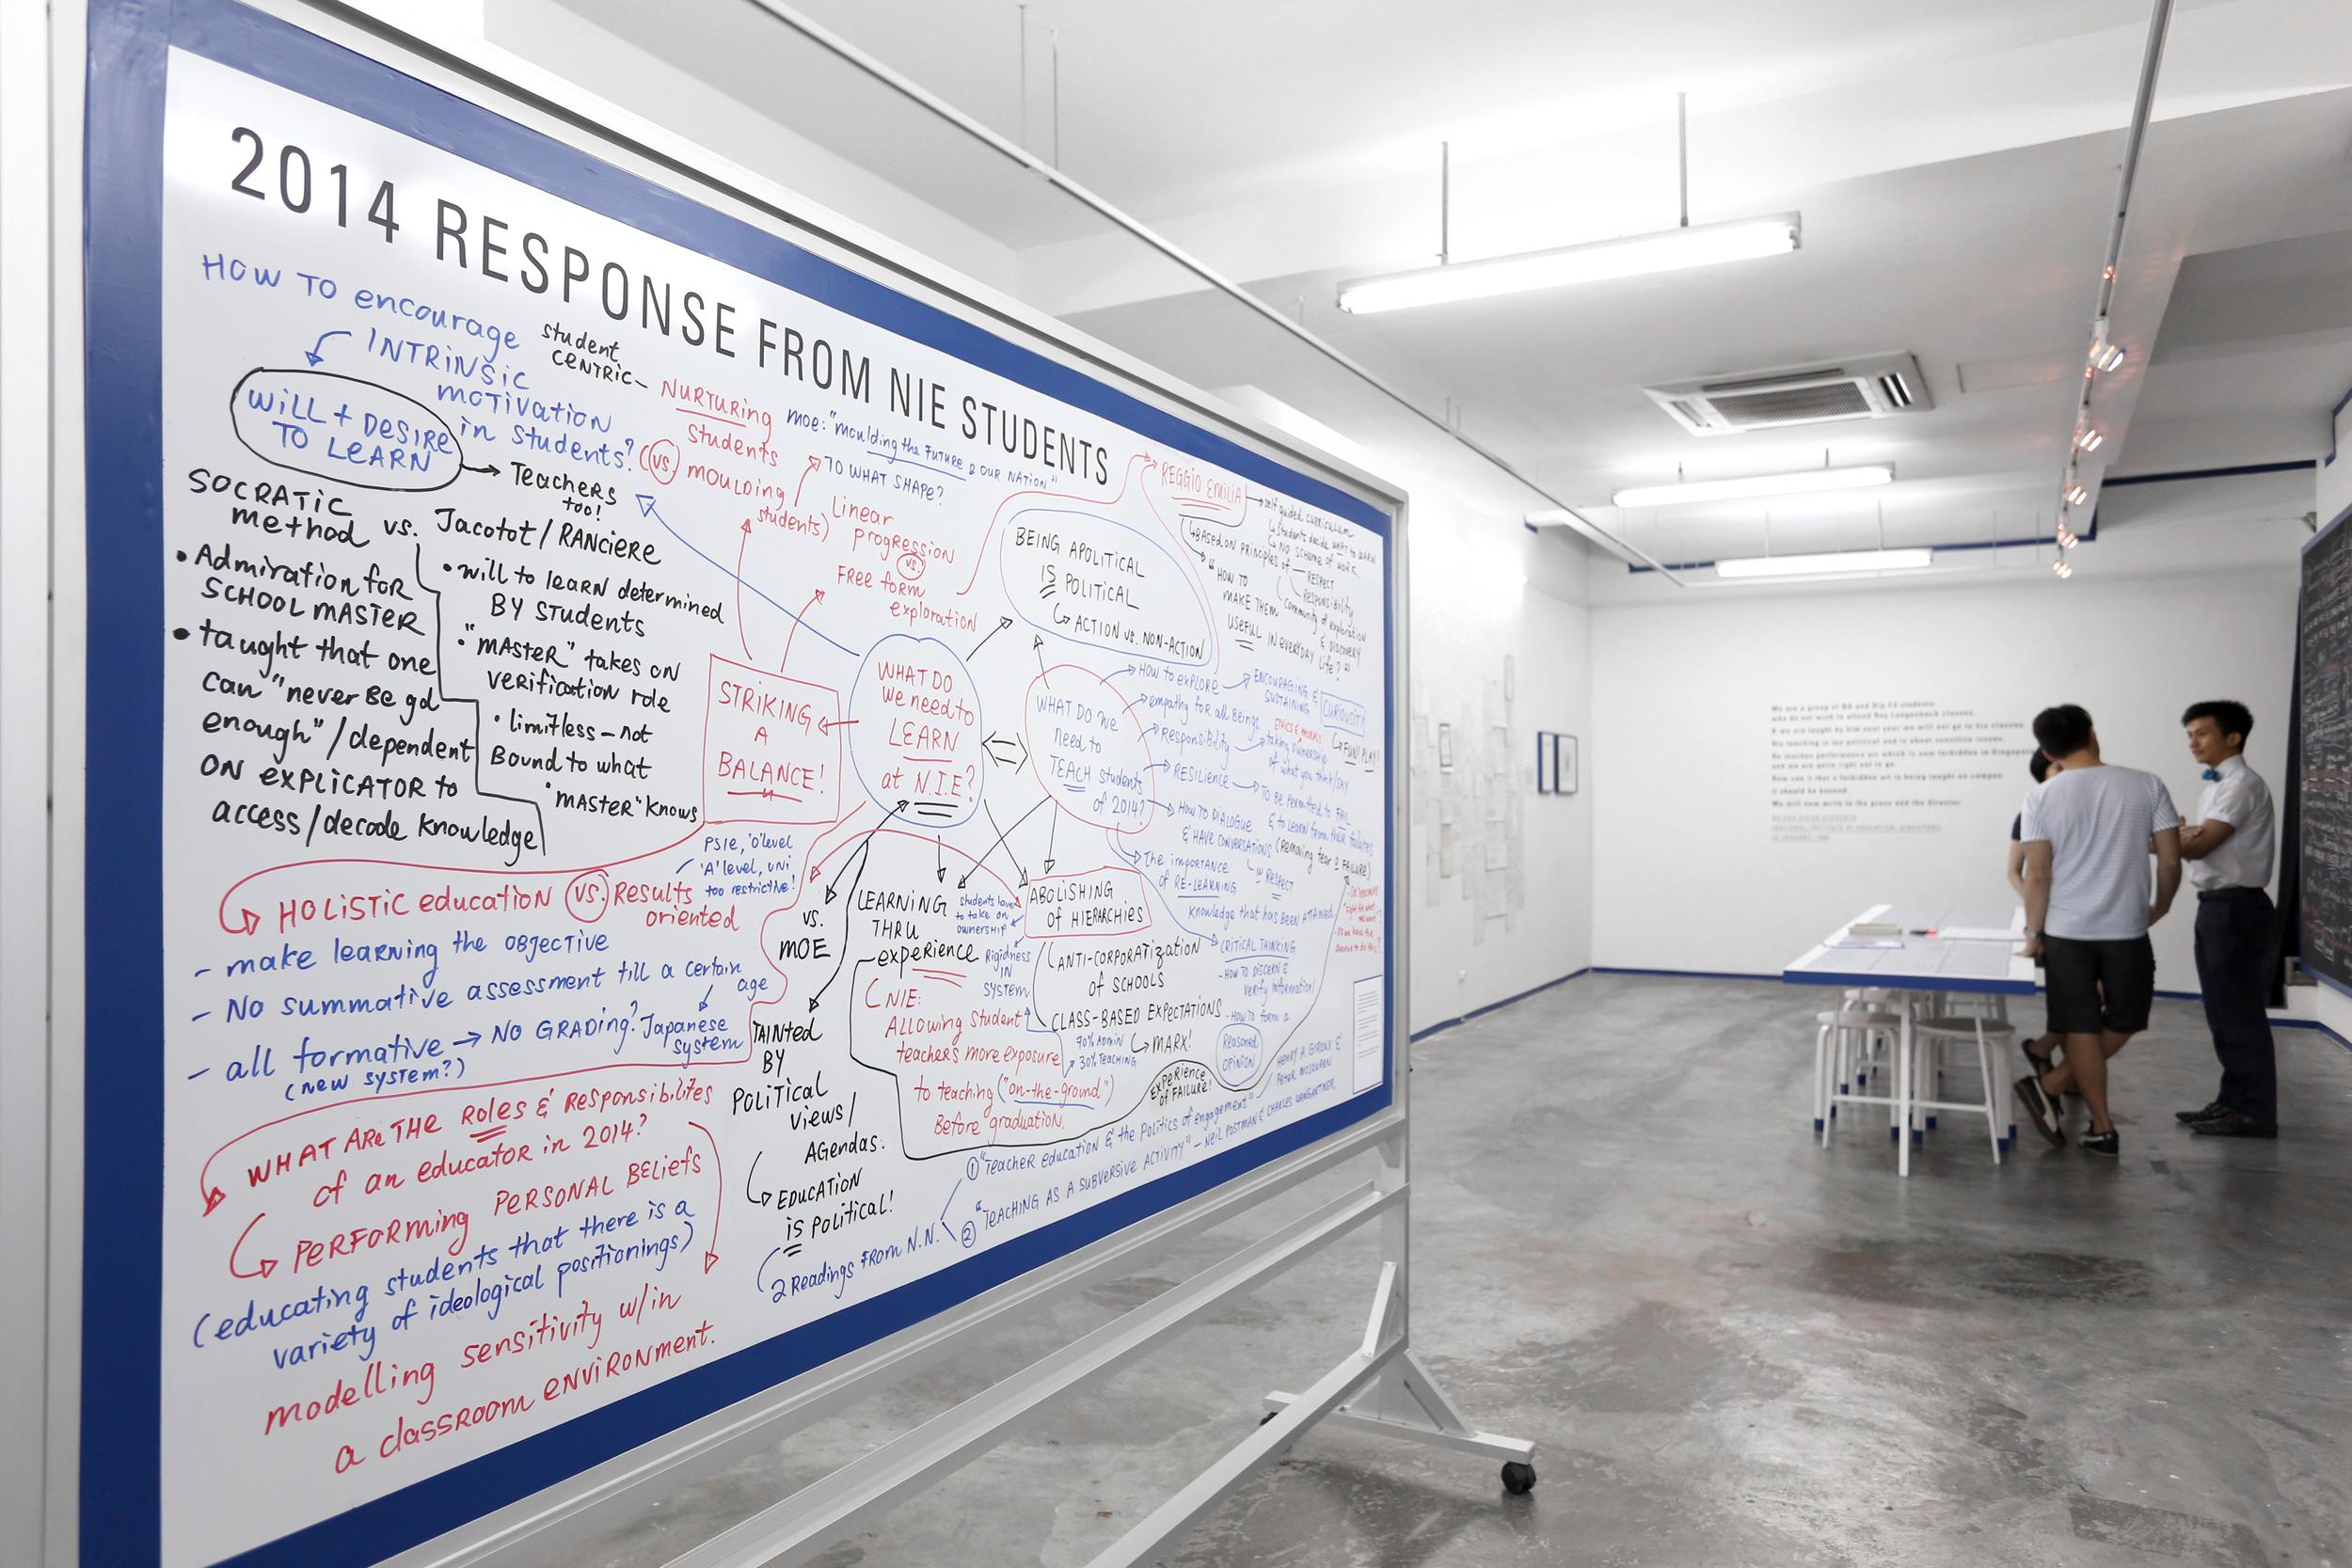 2014 RESPONSE FROM NIE STUDENTS
HOW TO encourage
INTRINSIC
MOTIVATION
in students?
WILL + DESIRE
TO LEARN
Teachers
too!
student
CENTRIC-
NURTURING
students
(vs. moulding
students)
MOE: "moulding the FUTURE of OUR NATION"
TO WHAT SHAPE?
Linear
progression
vs.
FREE form
exploration
SOCRATIC
method vs. Jacotot / RANCIERE
• Admiration for
SCHOOLMASTER
• taught that one
can "never BE gd
enough" / dependent
ON EXPLICATOR to
access/decode knowledge
• will to learn determined
BY STUDENTS
• "MASTER" takes on
verification role
• limitless – not
Bound to what
"MASTER" knows
STRIKING
A
BALANCE!
WHAT DO
we need to
LEARN
at N.I.E?
BEING APOLITICAL
IS POLITICAL
ACTION vs. NON-ACTION
REGGIO EMILIA
self guided curriculum
students decide WHAT to LEARN
NO SCHEME of WORK
BASED ON PRINCIPLES of
RESPECT
RESPONSIBILITY
Community of exploration
& DISCOVERY
"HOW TO
MAKE THEM
USEFUL IN EVERYDAY
life?"
WHAT DO we
need to
TEACH students
of 2014?
HOW TO EXPLORE
ENCOURAGING &
SUSTAINING
CURIOSITY
FUN! PLAY!
empathy for all Beings
RESPONSIBILITY
ETHICS & MORALS
taking ownership
of what you think/SAY
RESILIENCE
TO BE PERMITTED TO FAIL
& to LEARN from their failures
(removing fear of FAILURE)
HOW TO DIALOGUE
& HAVE CONVERSATIONS
w RESPECT
The importance
of RE-LEARNING
Knowledge that has been ATTAINED
CRITICAL THINKING
- HOW TO DISCERN &
verify information
- HOW TO form a
Reasoned
OPINION
HOLISTIC education vs. Results
oriented
PSLE, 'O' level
'A' level, UNI
too restrictive!
- make learning the OBJECTIVE
- NO summative assessment till a certain
age
- all formative → NO GRADING?
(new system?)
Japanese
system
vs.
MOE
LEARNING
THRU
experience
students have
to take on
ownership
Rigidness
IN
SYSTEM
ABOLISHING
of HIERARCHIES
ANTI-CORPORATIZATION
of SCHOOLS
CLASS-BASED EXPECTATIONS
MARX!
70% ADMIN
30% TEACHING
NIE:
ALLOWING student
teachers more exposure
to teaching ("on-the-ground")
Before graduation.
EXPERIENCE
of FAILURE!
TAINTED
BY
POLITICAL
views/
AGENDAS.
EDUCATION
is POLITICAL!
2 Readings from N.N.
① "Teacher education & the politics of engagement"
HENRY A GIROUX &
PETER MCLAREN
② "TEACHING AS A SUBVERSIVE ACTIVITY" – NEIL POSTMAN & CHARLES WEINGARTNER
WHAT ARE THE ROLES & Responsibilites
of an educator in 2014?
PERFORMING PERSONAL BELIEFS
(educating students that there is a
variety of ideological positionings)
modelling sensitivity w/in
a classroom environment.